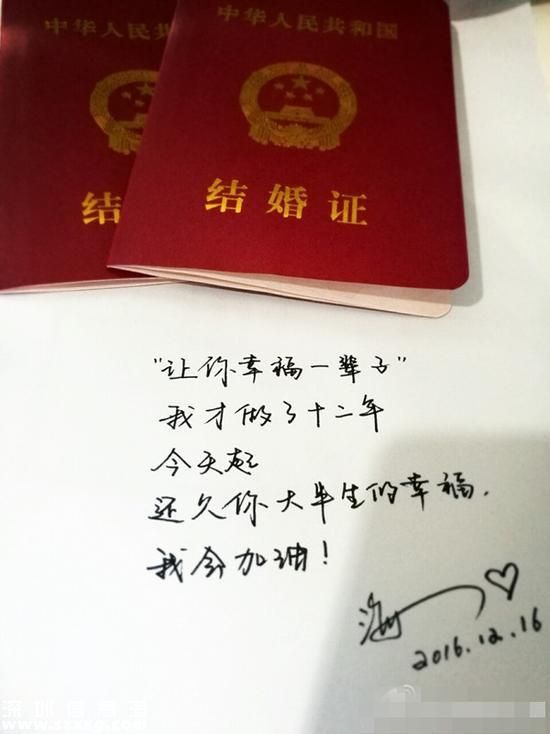 中华人民共
中华人民共和国
结
结婚证
"让你幸福一辈子"
我才做了十二年
今天起
还欠你大半生的幸福.
我会加油!
2016.12.16
深圳信息港
www.szxxg.com